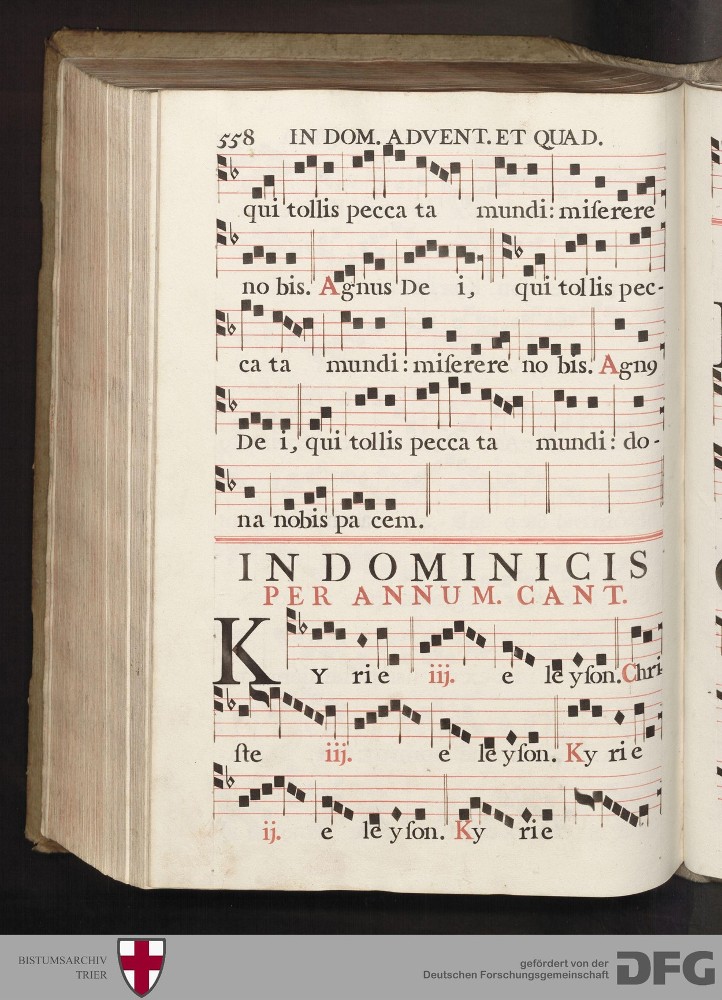 558 IN DOM. ADVENT. ET QUAD.
qui tollis pecca ta mundi: miſerere
no bis. Agnus De i, qui tol lis pec-
ca ta mundi: miſerere no bis. Agn9
De i, qui tollis pecca ta mundi: do-
na nobis pa cem.
IN DOMINICIS
PER ANNUM. CANT.
KY rie iij. e le yſon. Chri
ſte iij. e le yſon. Ky rie
ij. e le yſon. Ky rie
BISTUMSARCHIV
TRIER
gefördert von der
Deutschen Forschungsgemeinschaft
DFG